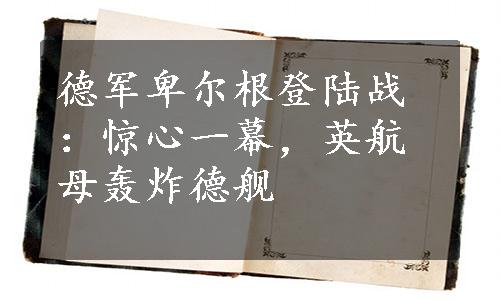 德军卑尔根登陆战
：惊心一幕，英航
母轰炸德舰